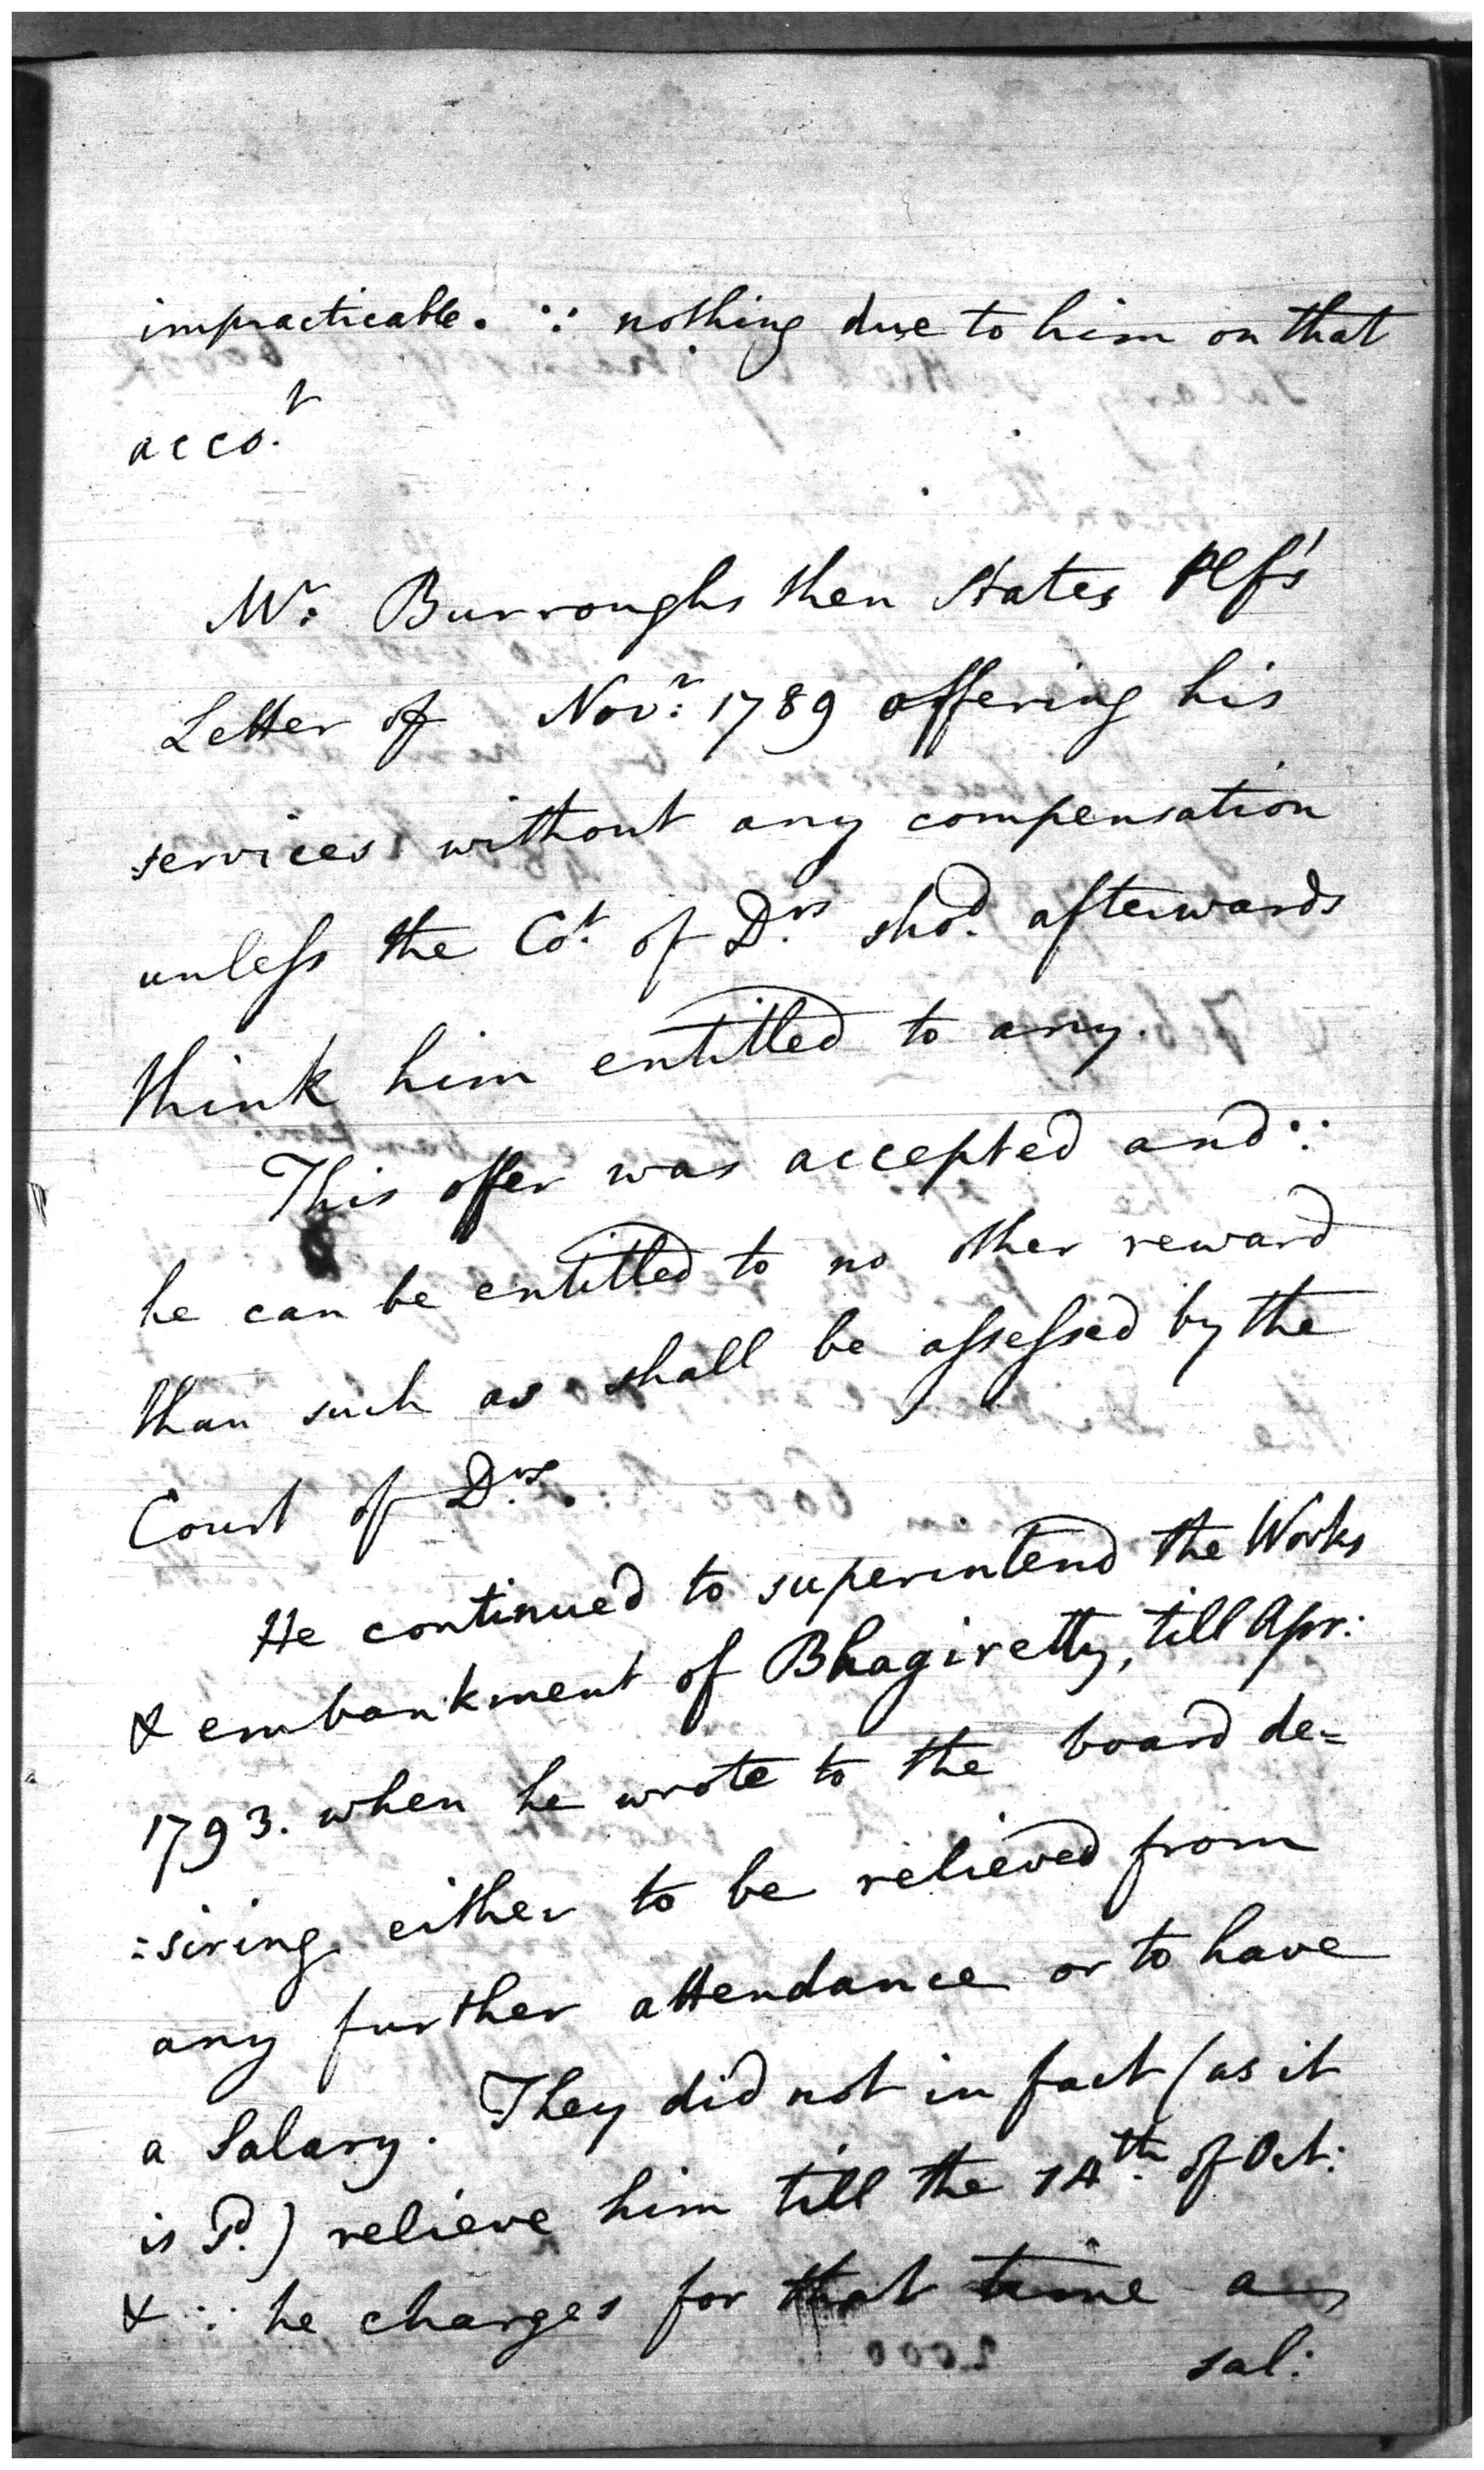 impracticable. ∵ nothing due to him on that
acco.t
Mr: Burroughs then States Plfs'
Letter of Novr: 1789 offering his
services without any compensation
unless the Co.t of D.rs sho.d afterwards
think him entitled to any.
This offer was accepted and ∵
he can be entitled to no other reward
than such as shall be assessed by the
Court of D.rs.
He continued to superintend the Works
& embankment of Bhagiretty, till Apr:
1793. when he wrote to the board de=
=siring either to be relieved from
any further attendance or to have
a Salary. They did not in fact (as it
is P.d) relieve him till the 14th. of Oct:
& ∵ he charges for that time a
sal: